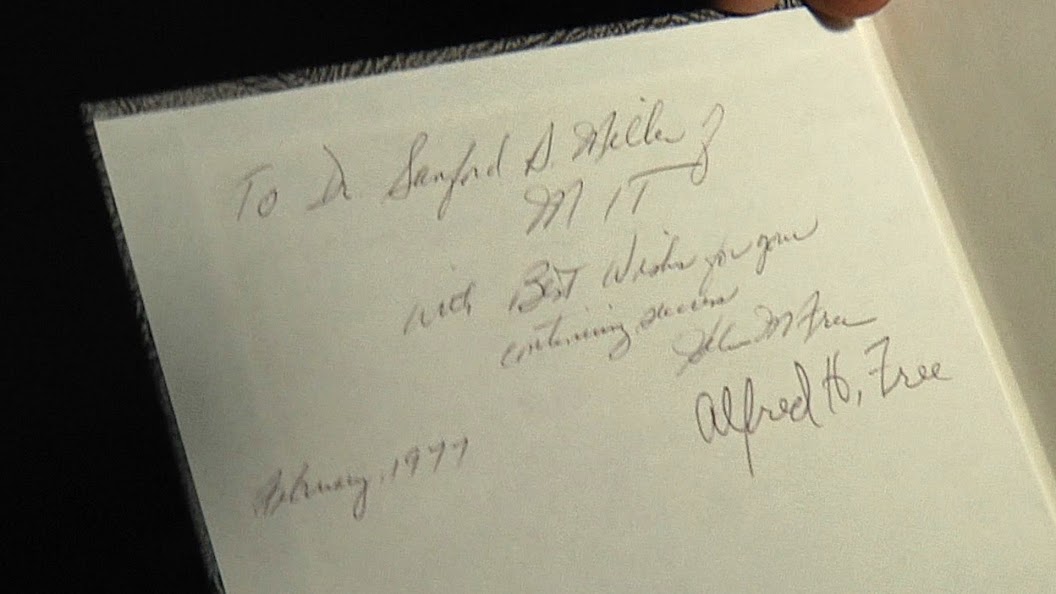 To Dr. Sanford A. Miller of
MIT
with Best Wishes for your
continuing success
Helen M Free
Alfred H. Free
February, 1977